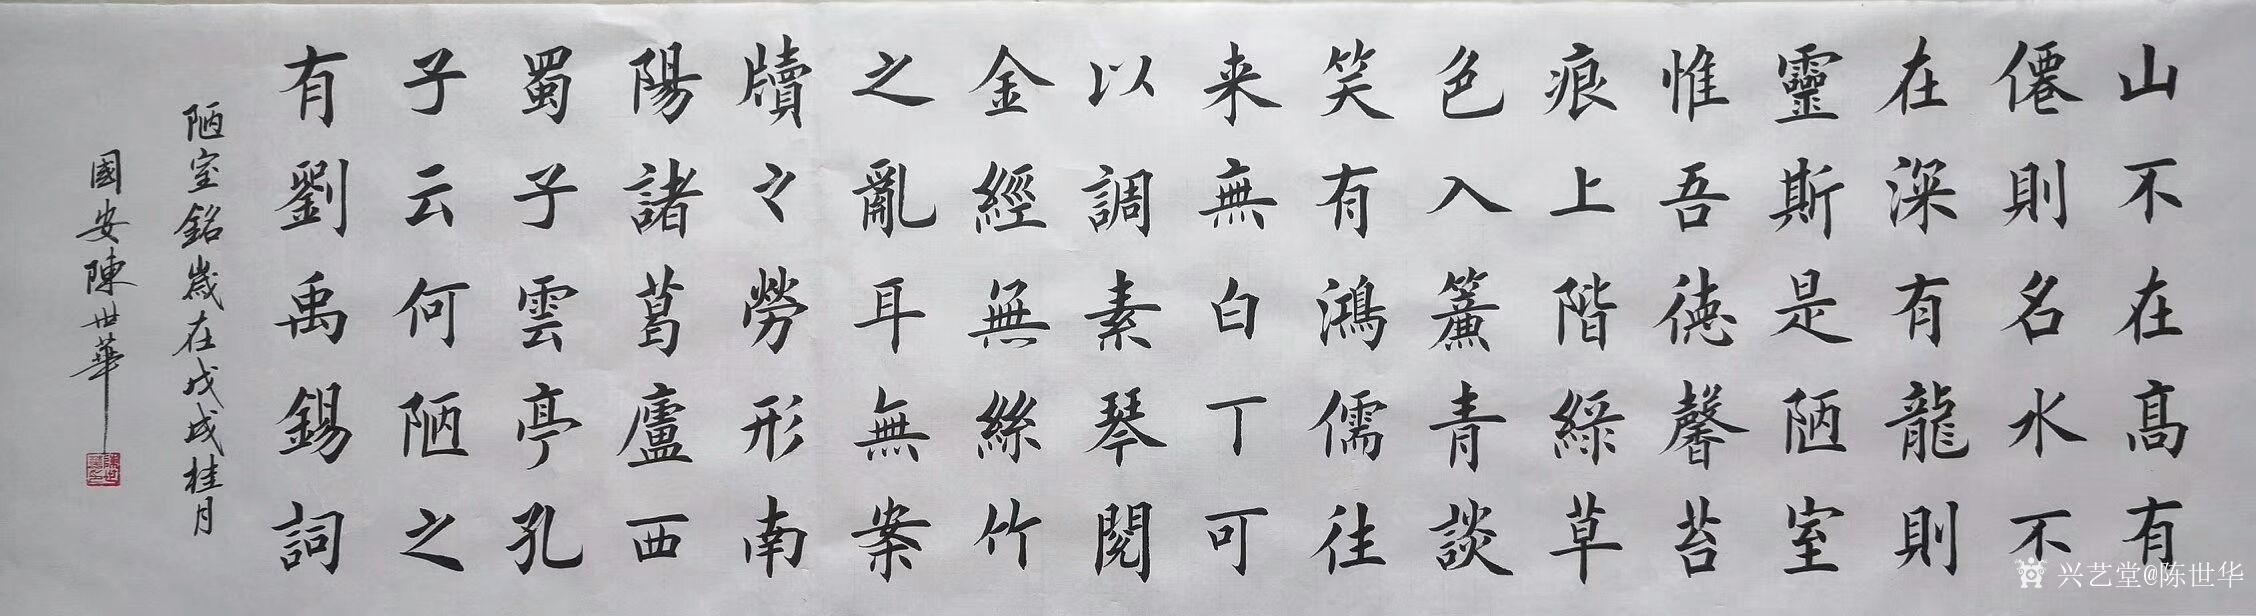 山不在高有
僊則名水不
在深有龍則
靈斯是陋室
惟吾德馨苔
痕上階綠草
色入簾青談
笑有鴻儒往
来無白丁可
以調素琴閱
金經無絲竹
之亂耳無案
牘之勞形南
陽諸葛廬西
蜀子雲亭孔
子云何陋之
有劉禹錫詞
陋室銘歲在戊戌桂月
國安陳世華
兴艺堂@陈世华